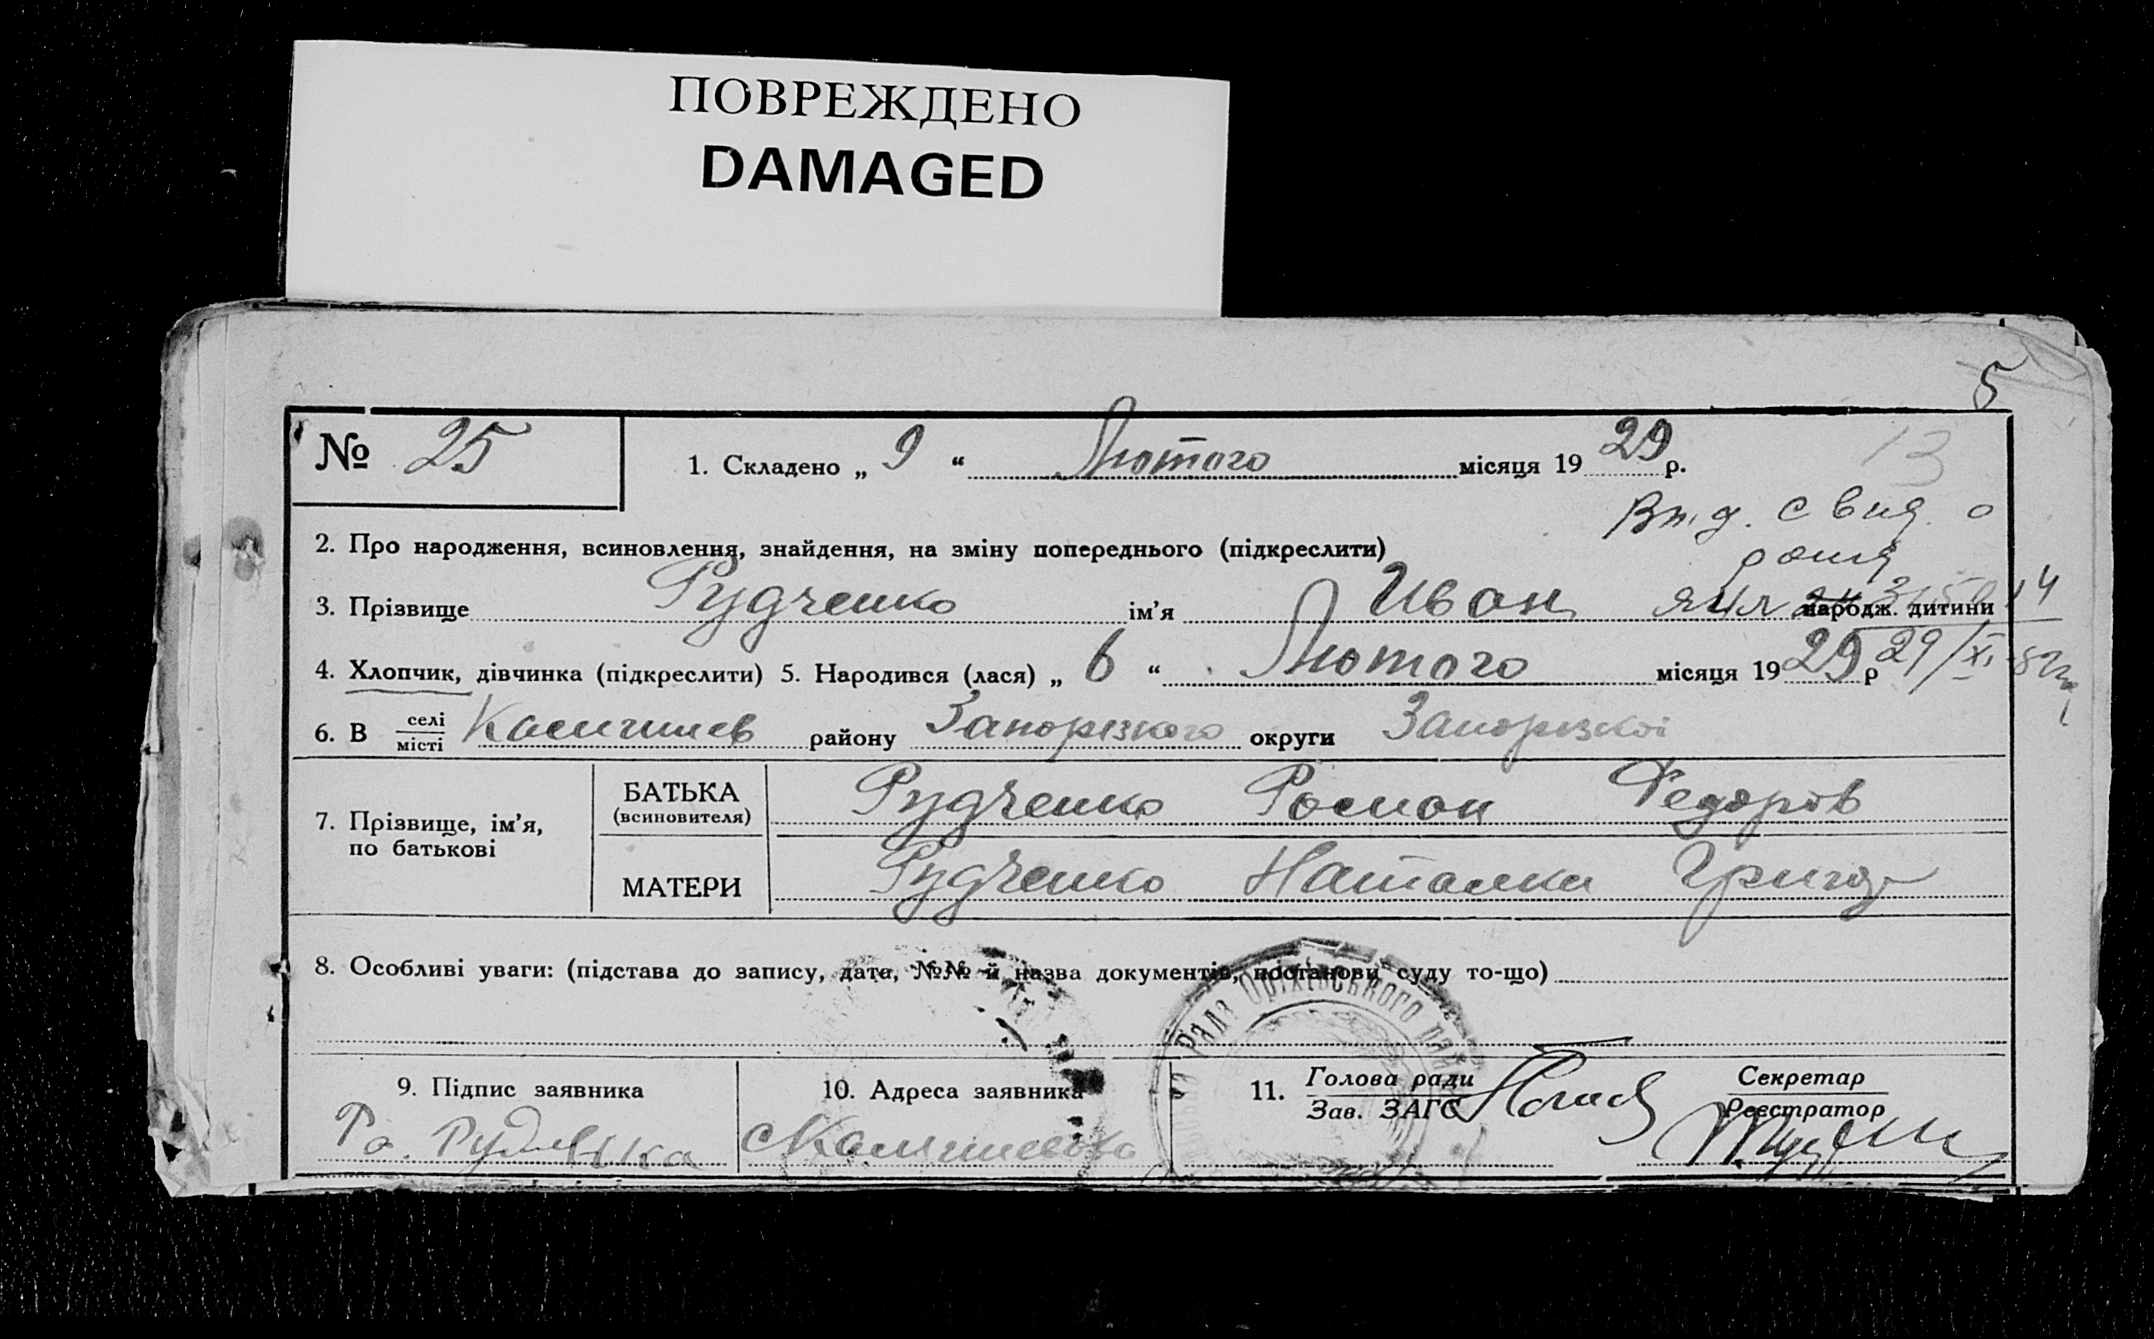 ПОВРЕЖДЕНО
DAMAGED
5
13
№ 25
1. Складено „ 9 “ Лютого місяця 19 29 р.
Выд. свид. о
2. Про народження, всиновлення, знайдення, на зміну попереднього (підкреслити)
3. Прізвище Рудченко ім’я Иван народж. дитини
4. Хлопчик, дівчинка (підкреслити) 5. Народився (лася) „ 6 “ Лютого місяця 19 29 р 29/XI
6. В селі місті району Запорізкого округи Запорізкої
7. Прізвище, ім’я, по батькові
БАТЬКА (всиновителя) Рудченко Роман Федоров
МАТЕРИ Рудченко Наталка Григор
8. Особливі уваги: (підстава до запису, дата, №№ й назва документів, постанови суду то-що)
Рада Оріхівського
9. Підпис заявника
10. Адреса заявника
11. Голова ради Зав. ЗАГС
Секретар Реєстратор